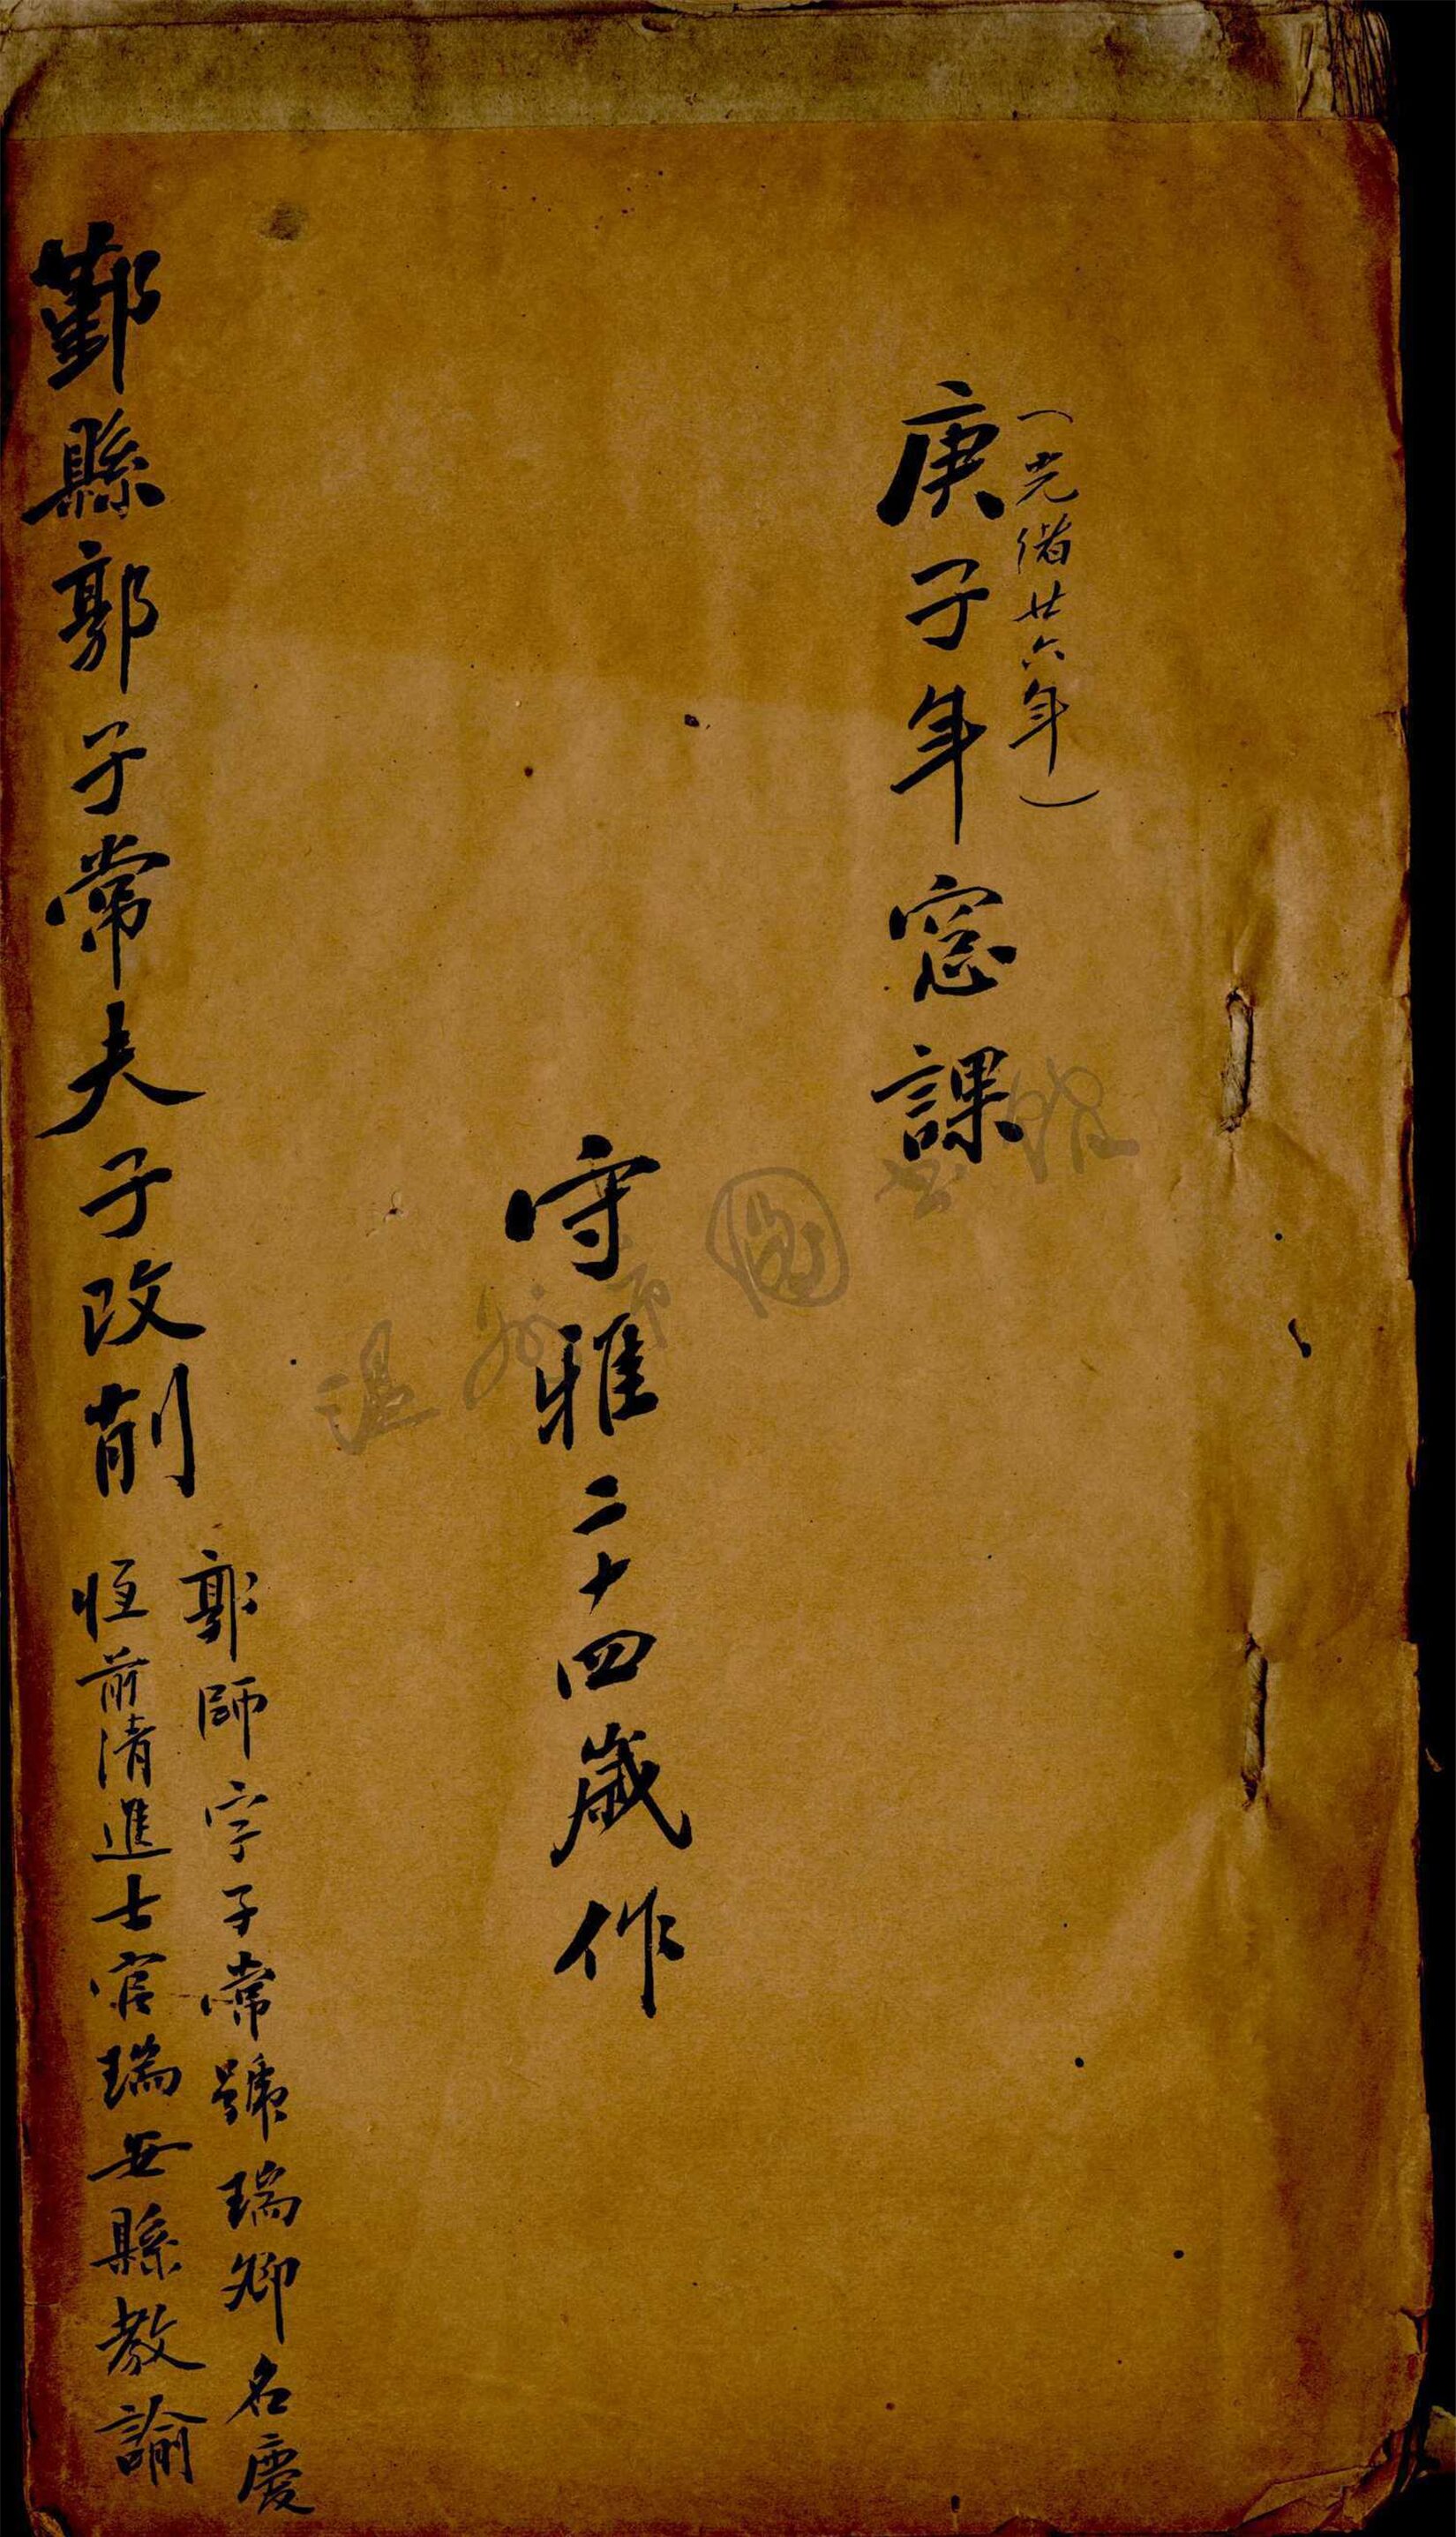 （光緒廿六年）
庚子年窓課
守雅二十四歲作
鄞縣郭子常夫子改削
郭師字子常號瑞卿名慶
恆前清進士官瑞安縣教諭
温州市圖書館